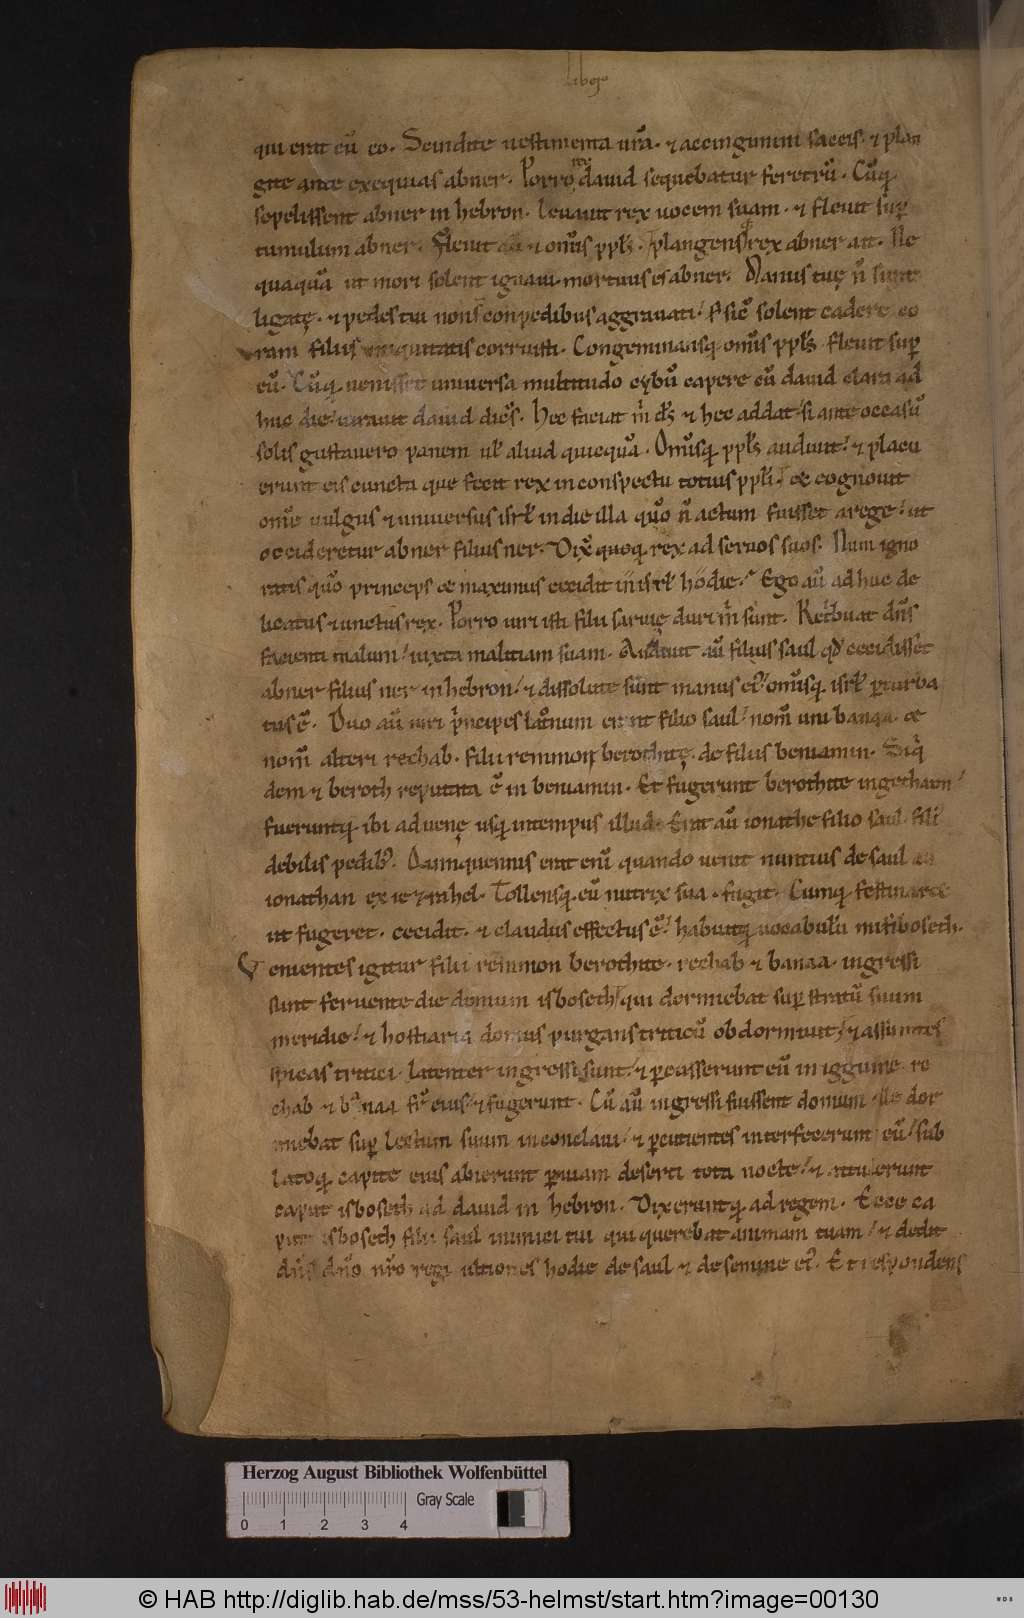 liber
qui erat cū eo. Scindite uestimenta ur̄a. ⁊ accingimini saccis. ⁊ plan
gite ante exequias abner. Porro rex dauid sequebatur feretrū. Cūq;
sepelissent abner in hebron. leuauit rex uocem suam. ⁊ fleuit sup̄
tumulum abner. Fleuit ⁊ om̄is pp̄ls. plangens rex abner ait. Ne
quaquā ut mori solent ignaui mortuus es abner. Manus tuę n̄ sunt
ligatę. ⁊ pedes tui non s̄ conpedibus aggrauati. S; sic̄ solent cadere co
ram filiis iniquitatis corruisti. Congeminansq; om̄is pp̄ls fleuit sup̄
eū. Cūq; uenisset uniuersa multitudo cybū capere cū dauid clara ad
huc die. iurauit dauid dicēs. Hec faciat m̄ ds̄ ⁊ hec addat si ante occasū
solis gustauero panem ul̄ aliud quicquā. Om̄isq; pp̄ls audiuit. ⁊ placu
erunt eis cuncta que fecit rex in conspectu totius pp̄li. ⁊ cognouit
om̄e uulgus ⁊ uniuersus isrl̄ in die illa quō n̄ actum fuisset a rege. ut
occideretur abner filius ner. Dix̄ quoq; rex ad seruos suos. Num igno
ratis quō princeps ⁊ maximus cecidit in isrl̄ hodie. Ego aū adhuc de
licatus ⁊ unctus rex. Porro uiri isti filii saruię duri m̄ sunt. Retribuat dn̄s
facienti malum. iuxta malitiam suam. Audiuit aū filius saul qd̄ cecidisset
abner filius ner in hebron. ⁊ dissolute sunt manus ei'. om̄isq; isrl̄ p̄turba
tus ē. Duo aū uiri p'ncipes latronum erant filio saul. nom̄ uni banaa. ⁊
nom̄ alteri rechab. filii remmon berothitę. de filiis beniamin. Siq'
dem ⁊ beroth reputata ē in beniamin. Et fugerunt berothite in gethaim
fueruntq; ibi aduenę usq; in tempus illud. Erat aū ionathe filio saul fili'
debilis pedib;. Quinquennis erat enī quando uenit nuntius de saul
ionathan ex iezrahel. Tollensq; eū nutrix sua. fugit. Cumq; festinaret
ut fugeret. cecidit. ⁊ claudus effectus ē. habuitq; uocabulū mifiboseth.
Uenientes igitur filii remmon berothite. rechab ⁊ banaa. ingressi
sunt feruente die domum isboseth. qui dormiebat sup̄ stratū suum
meridie. ⁊ hostiaria domus purgans triticū obdormiuit. ⁊ assumtes
spicas tritici latenter ingressi sunt. ⁊ p̄cusserunt eū in iggume re
chab ⁊ banaa fr̄ eius. ⁊ fugerunt. Cū aū ingressi fuissent domum. ille dor
miebat sup̄ lectum suum in conclaui. ⁊ p̄cutientes interfecerunt eū. sub
latoq; capite eius abierunt p̄ uiam deserti tota nocte. ⁊ attulerunt
caput isboseth ad dauid in hebron. Dixeruntq; ad regem. Ecce ca
put isboseth filii saul inimici tui qui querebat animam tuam. ⁊ dedit
dn̄s dn̄o nr̄o regi ultiones hodie de saul ⁊ de semine ei'. Et respondens
Herzog August Bibliothek Wolfenbüttel
Gray Scale
0 1 2 3 4
© HAB http://diglib.hab.de/mss/53-helmst/start.htm?image=00130